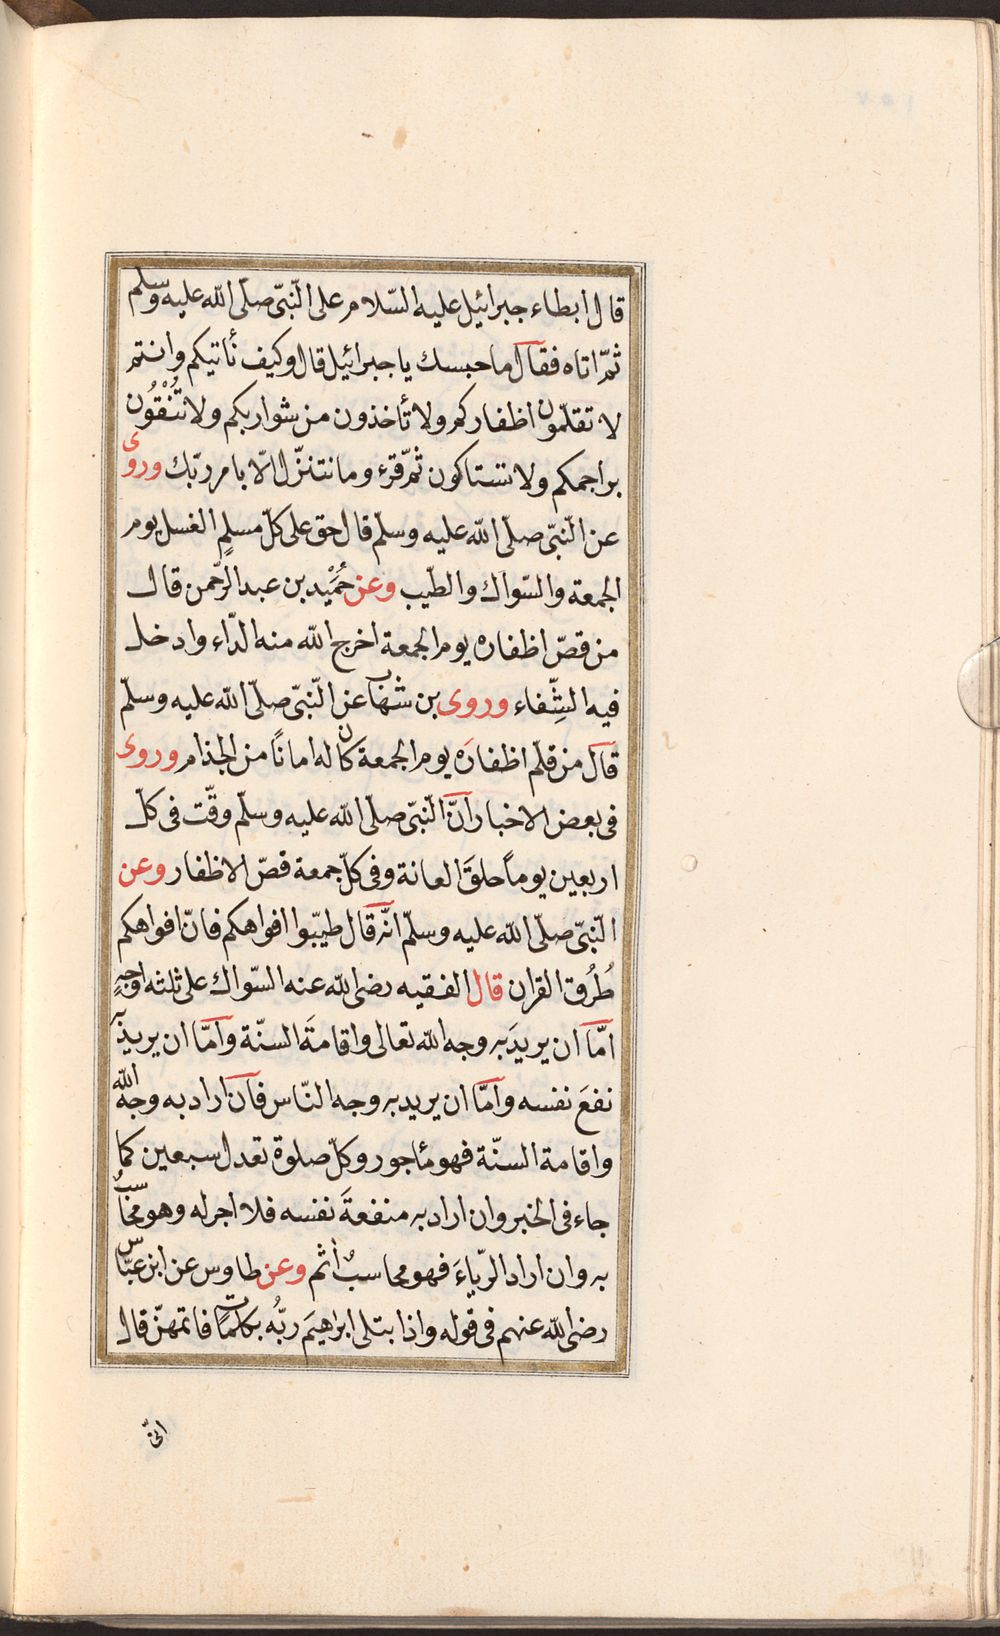 قال ابطاء جبرائيل عليه السّلام على النّبىّ صلّى الله عليه وسلم
ثمّ اتاه فقال ما حبسك يا جبرائيل قال وكيف نأتيكم وانتم
لا تقلّمون اظفاركم ولا تأخذون من شواربكم ولا تُنْقُون
براجمكم ولا تستاكون ثمّ قرء وما نتنزّل الّا بامر ربّك وروى
عن النّبىّ صلّى الله عليه وسلّم قال حق على كلّ مسلمٍ الغسل يوم
الجمعة والسّواك والطّيب وعن حُمَيْد بن عبد الرّحمن قال
من قصّ اظفاره يوم الجمعة اخرج الله منه الدّاء وادخل
فيه الشِّفاء وروى بن شهاب عن النّبىّ صلّى الله عليه وسلّم
قال من قلّم اظفارَه يوم الجمعة كان له امانًا من الجذام وروى
فى بعض الاخبار انّ النّبىّ صلّى الله عليه وسلّم وقّت فى كلّ
اربعين يوماً حلقَ العانة وفى كلّ جمعة قصّ الاظفار وعن
النّبىّ صلّى الله عليه وسلّم انّه قال طيّبوا افواهكم فانّ افواهكم
طُرُق القران قال الفقيه رضى الله عنه السّواك على ثلثه اوجهٍ
امّا ان يريدَ به وجه الله تعالى واقامةَ السنّة وامّا ان يريد به
نفعَ نفسه وامّا ان يريد به وجه النّاس فان اراد به وجه الله
واقامة السنّة فهو مأجور وكلّ صلوة تعدل سبعين كما
جاء فى الخبر وان اراد به منفعةَ نفسه فلا اجر له وهو محاسبٌ
به وان اراد الرّياءَ فهو محاسبٌ أثم وعن طاوس عن ابن عبّاس
رضى الله عنهم فى قوله واذا بتلى ابرهيمَ ربُّه بكلمات فاتمهنّ قال